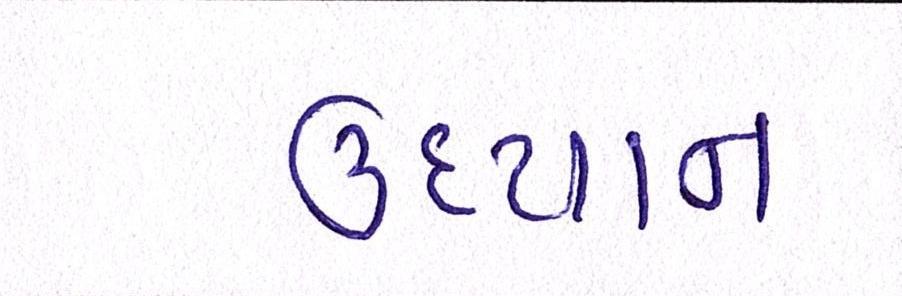 ઉદયાન